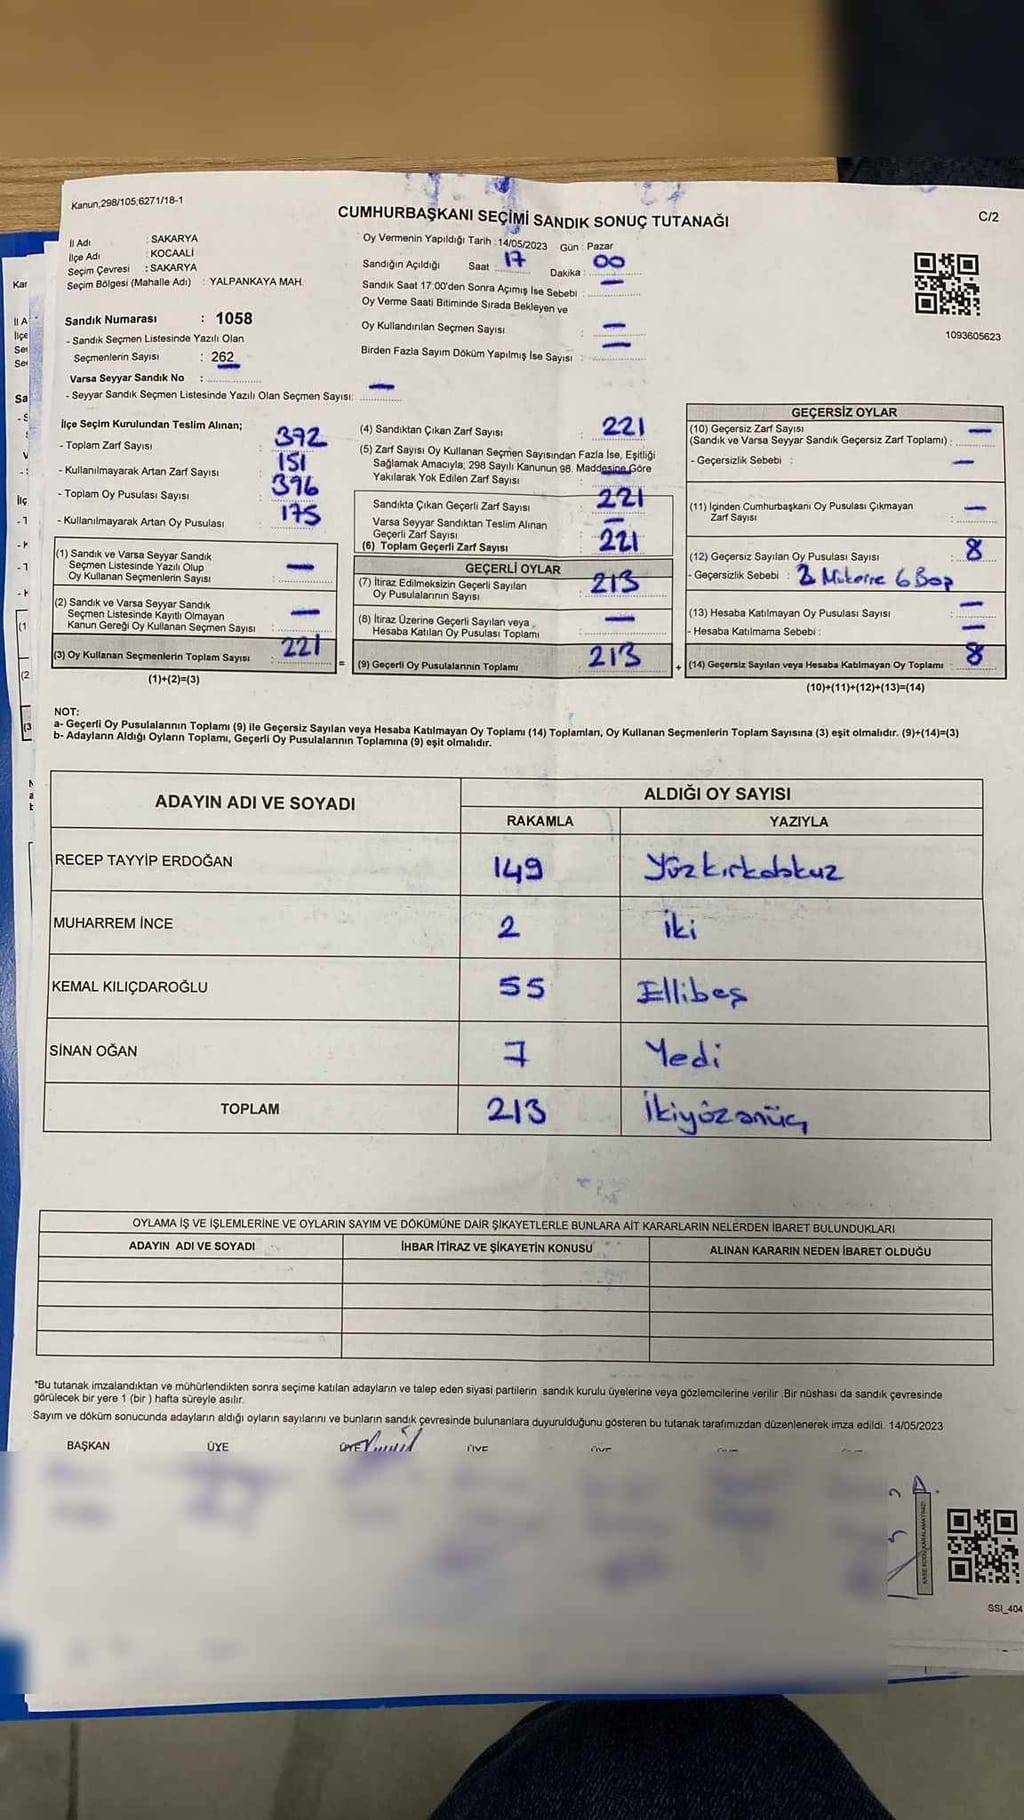 Kanun,298/105,6271/18-1
CUMHURBAŞKANI SEÇİMİ SANDIK SONUÇ TUTANAĞI
C/2
İl Adı : SAKARYA
İlçe Adı : KOCAALİ
Seçim Çevresi : SAKARYA
Seçim Bölgesi (Mahalle Adı) : YALPANKAYA MAH.
Oy Vermenin Yapıldığı Tarih : 14/05/2023 Gün : Pazar
Sandığın Açıldığı Saat : 17 Dakika : 00
Sandık Saat 17:00'den Sonra Açımış İse Sebebi : —
Oy Verme Saati Bitiminde Sırada Bekleyen ve
Oy Kullandırılan Seçmen Sayısı : —
Birden Fazla Sayım Döküm Yapılmış İse Sayısı : —
1093605623
Sandık Numarası : 1058
- Sandık Seçmen Listesinde Yazılı Olan
Seçmenlerin Sayısı : 262
Varsa Seyyar Sandık No :
- Seyyar Sandık Seçmen Listesinde Yazılı Olan Seçmen Sayısı: —
İlçe Seçim Kurulundan Teslim Alınan;
- Toplam Zarf Sayısı : 372
- Kullanılmayarak Artan Zarf Sayısı : 151
- Toplam Oy Pusulası Sayısı : 396
- Kullanılmayarak Artan Oy Pusulası : 175
(1) Sandık ve Varsa Seyyar Sandık
Seçmen Listesinde Yazılı Olup
Oy Kullanan Seçmenlerin Sayısı : —
(2) Sandık ve Varsa Seyyar Sandık
Seçmen Listesinde Kayıtlı Olmayan
Kanun Gereği Oy Kullanan Seçmen Sayısı : —
(3) Oy Kullanan Seçmenlerin Toplam Sayısı : 221
(1)+(2)=(3)
(4) Sandıktan Çıkan Zarf Sayısı : 221
(5) Zarf Sayısı Oy Kullanan Seçmen Sayısından Fazla İse, Eşitliği
Sağlamak Amacıyla; 298 Sayılı Kanunun 98. Maddesine Göre
Yakılarak Yok Edilen Zarf Sayısı : —
Sandıkta Çıkan Geçerli Zarf Sayısı : 221
Varsa Seyyar Sandıktan Teslim Alınan
Geçerli Zarf Sayısı : —
(6) Toplam Geçerli Zarf Sayısı : 221
GEÇERLİ OYLAR
(7) İtiraz Edilmeksizin Geçerli Sayılan
Oy Pusulalarının Sayısı : 213
(8) İtiraz Üzerine Geçerli Sayılan veya
Hesaba Katılan Oy Pusulası Toplamı : —
= (9) Geçerli Oy Pusulalarının Toplamı : 213
GEÇERSİZ OYLAR
(10) Geçersiz Zarf Sayısı
(Sandık ve Varsa Seyyar Sandık Geçersiz Zarf Toplamı) : —
- Geçersizlik Sebebi : —
(11) İçinden Cumhurbaşkanı Oy Pusulası Çıkmayan
Zarf Sayısı : —
(12) Geçersiz Sayılan Oy Pusulası Sayısı : 8
- Geçersizlik Sebebi : 6
(13) Hesaba Katılmayan Oy Pusulası Sayısı : —
- Hesaba Katılmama Sebebi : —
+ (14) Geçersiz Sayılan veya Hesaba Katılmayan Oy Toplamı : 8
(10)+(11)+(12)+(13)=(14)
NOT:
a- Geçerli Oy Pusulalarının Toplamı (9) ile Geçersiz Sayılan veya Hesaba Katılmayan Oy Toplamı (14) Toplamları, Oy Kullanan Seçmenlerin Toplam Sayısına (3) eşit olmalıdır. (9)+(14)=(3)
b- Adayların Aldığı Oyların Toplamı, Geçerli Oy Pusulalarının Toplamına (9) eşit olmalıdır.
ADAYIN ADI VE SOYADI
ALDIĞI OY SAYISI
RAKAMLA YAZIYLA
RECEP TAYYİP ERDOĞAN 149 Yüzkırkdokuz
MUHARREM İNCE 2 iki
KEMAL KILIÇDAROĞLU 55 Ellibeş
SİNAN OĞAN 7 Yedi
TOPLAM 213 İkiyüzonüç
OYLAMA İŞ VE İŞLEMLERİNE VE OYLARIN SAYIM VE DÖKÜMÜNE DAİR ŞİKAYETLERLE BUNLARA AİT KARARLARIN NELERDEN İBARET BULUNDUKLARI
ADAYIN ADI VE SOYADI İHBAR İTİRAZ VE ŞİKAYETİN KONUSU ALINAN KARARIN NEDEN İBARET OLDUĞU
*Bu tutanak imzalandıktan ve mühürlendikten sonra seçime katılan adayların ve talep eden siyasi partilerin sandık kurulu üyelerine veya gözlemcilerine verilir .Bir nüshası da sandık çevresinde
görülecek bir yere 1 (bir ) hafta süreyle asılır.
Sayım ve döküm sonucunda adayların aldığı oyların sayılarını ve bunların sandık çevresinde bulunanlara duyurulduğunu gösteren bu tutanak tarafımızdan düzenlenerek imza edildi. 14/05/2023
BAŞKAN ÜYE ÜYE ÜYE ÜYE
SSI_404